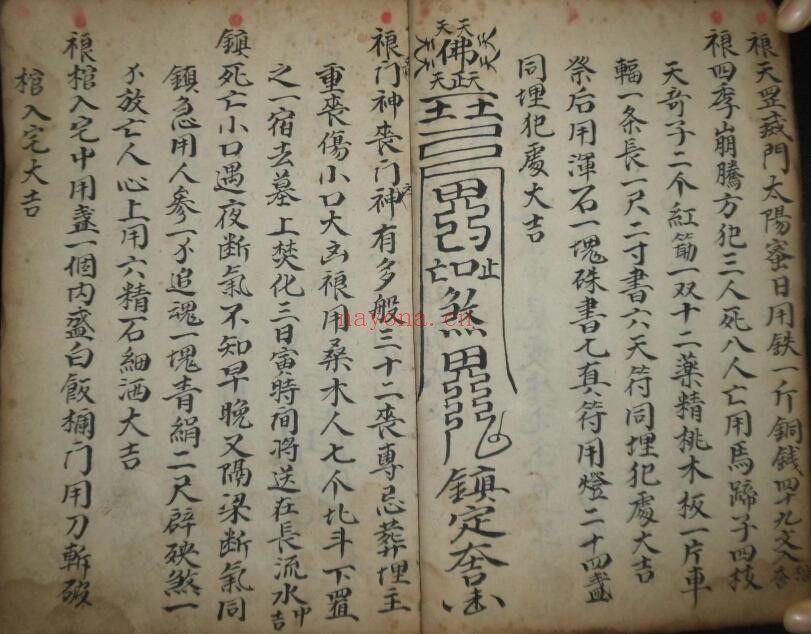 禳天罡藏門太陽蜜日用铁一斤銅钱四十九文
禳四季崩騰方犯三人死八人亡用馬蹄子四枝
天奇子二个紅筯一双十二薬精桃木板一片車
輻一条長一尺二寸書六天符同埋犯處大吉
祭后用渾石一塊硃書七真符用燈二十四盞
同埋犯處大吉
佛
正
天天
天天
亡如止
煞
鎮定
禳门神喪门神有多般三十二喪專忌葬埋主
重喪傷小口大凶禳用桑木人七个北斗下置
之一宿去墓上焚化三日寅時間将送在長流水中吉
鎮死亡小口遇夜断氣不知早晚又隔梁断氣同
鎮急用人参一个追魂一塊青絹二尺辟殃煞一
个放亡人心上用六精石細洒大吉
禳棺入宅中用盞一個内盛白飯桶门用刀斬破
棺入宅大吉
nayona.cn